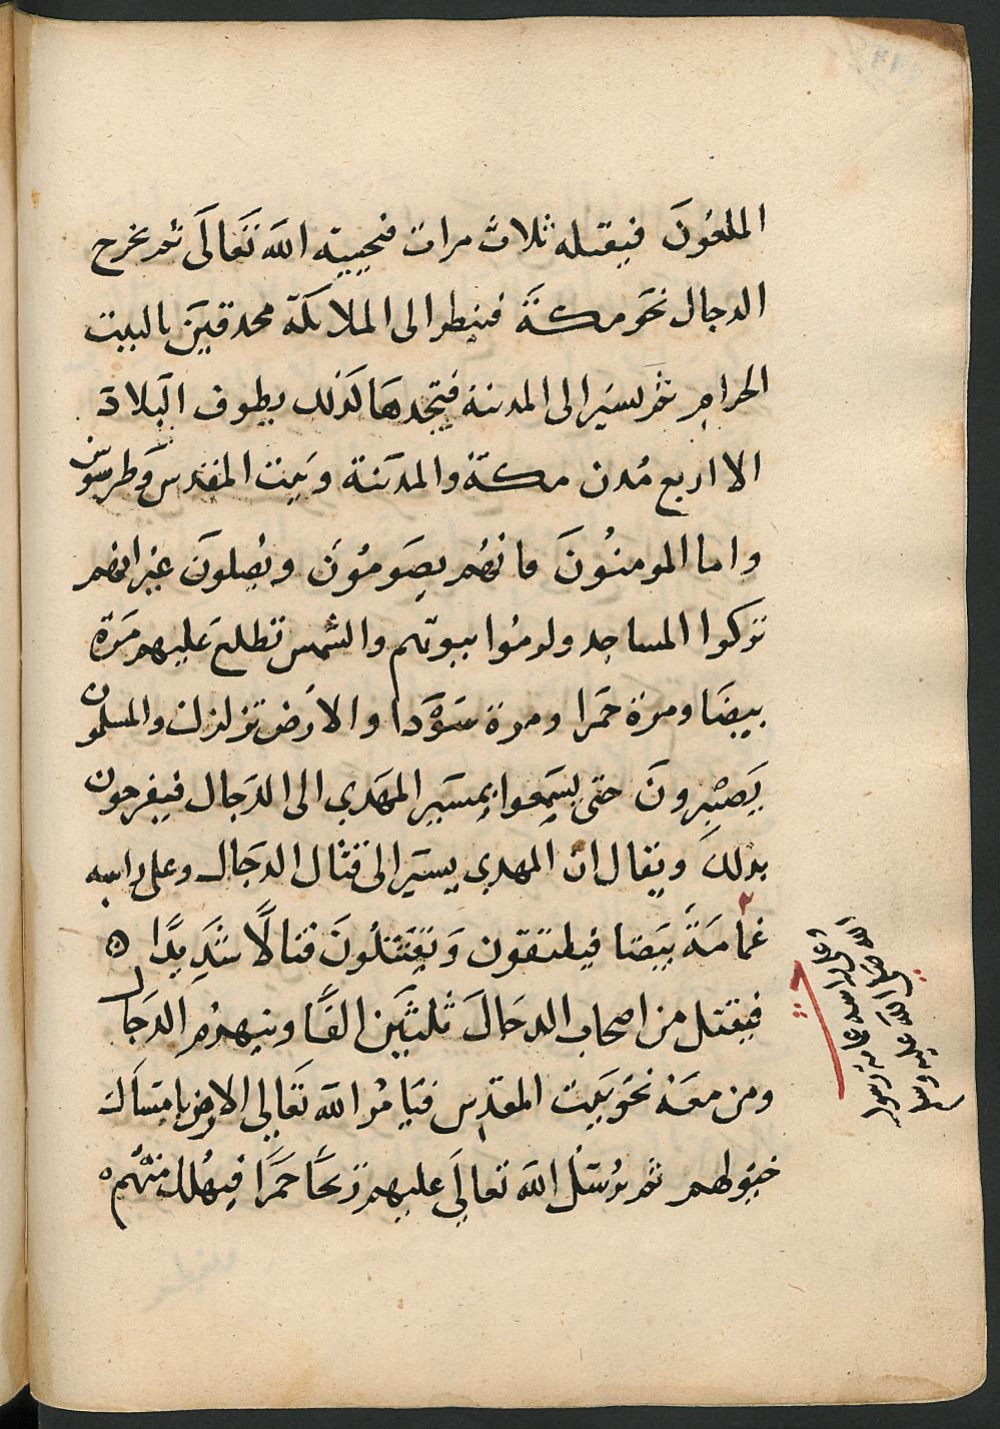 الملعُونَ فيقتله ثلاث مرات فيحييه الله تَعَالَى ثم يخرج
الدجال نحَو مكةَ فينطر الى الملايكة محدقينَ بالبيت
الحرام ثم يسيَر الى المدينة فيَجدهَا كَذلك يطوف البلاد
الا اربع مُدن مكة والمدَينة وبَيت المقدس وَطرسوس
واما المومنُونَ فانهُم يصَومُونَ ويُصلونَ غير انهم
تركوا المساجد ولزمُوا بيوتهم والشمس تطلع عليهم مَرة
بيضَا ومرة حَمرا ومرة سَوْدا والارَض تزلزلت والمسلمون
يَصْبرونَ حتى يسَمعوا بمسَير المهَدي الى الدجَال فيفرحون
بذلكَ ويقال ان المهدي يسيَر الى قتال الدجَال وعلى راسه
عمامَةً بيَضا فيلتقون وَيقتتلُونَ قتالًا شَدِيدًا ه
فيقتل من اصحاب الدجَالَ ثلثيَن الفًا وينهزمُ الدجَال
ومن معَهُ نحوَ بَيت المقدس فيَامُر الله تَعَالي الارض بامسَاك
خيولهم ثم يرُسَلُ الله تعالَي عليهم ريحًا حَمَرا فيهُلك منهُم ه
وعلى راسه عمامة رسول
الله صلى الله عليه وسلم